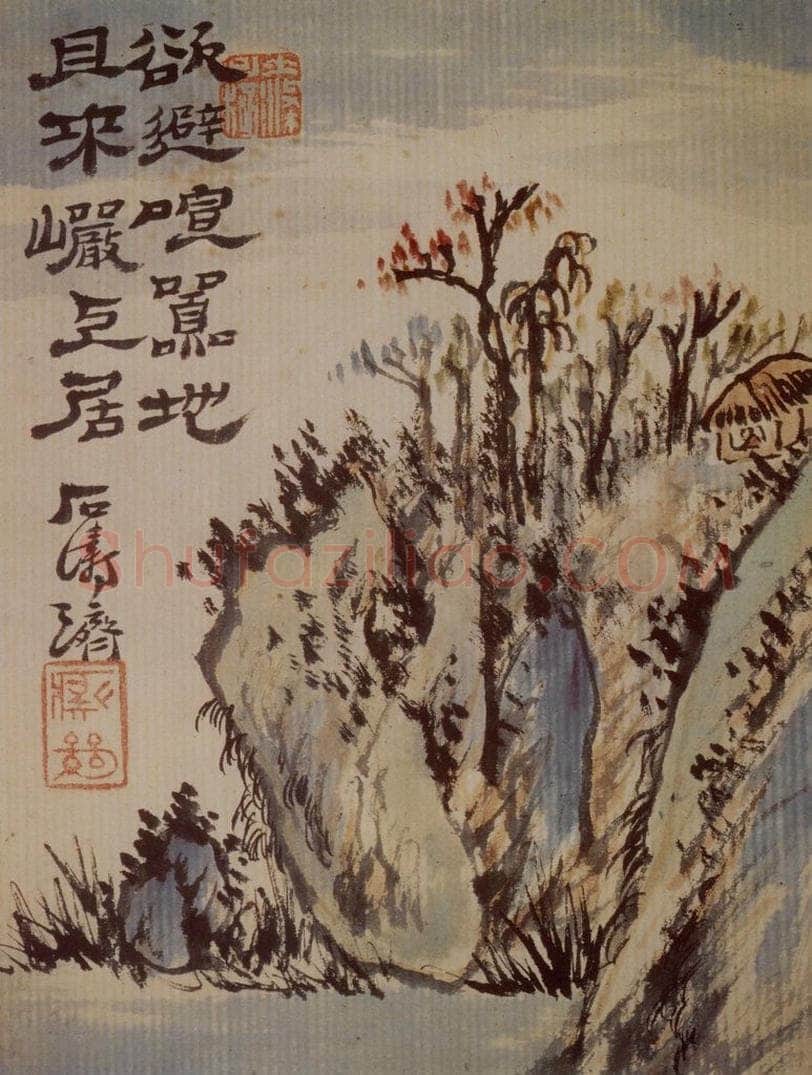 欲避喧嚣地
且来巖居
石濤濟
Shufaziliao.com